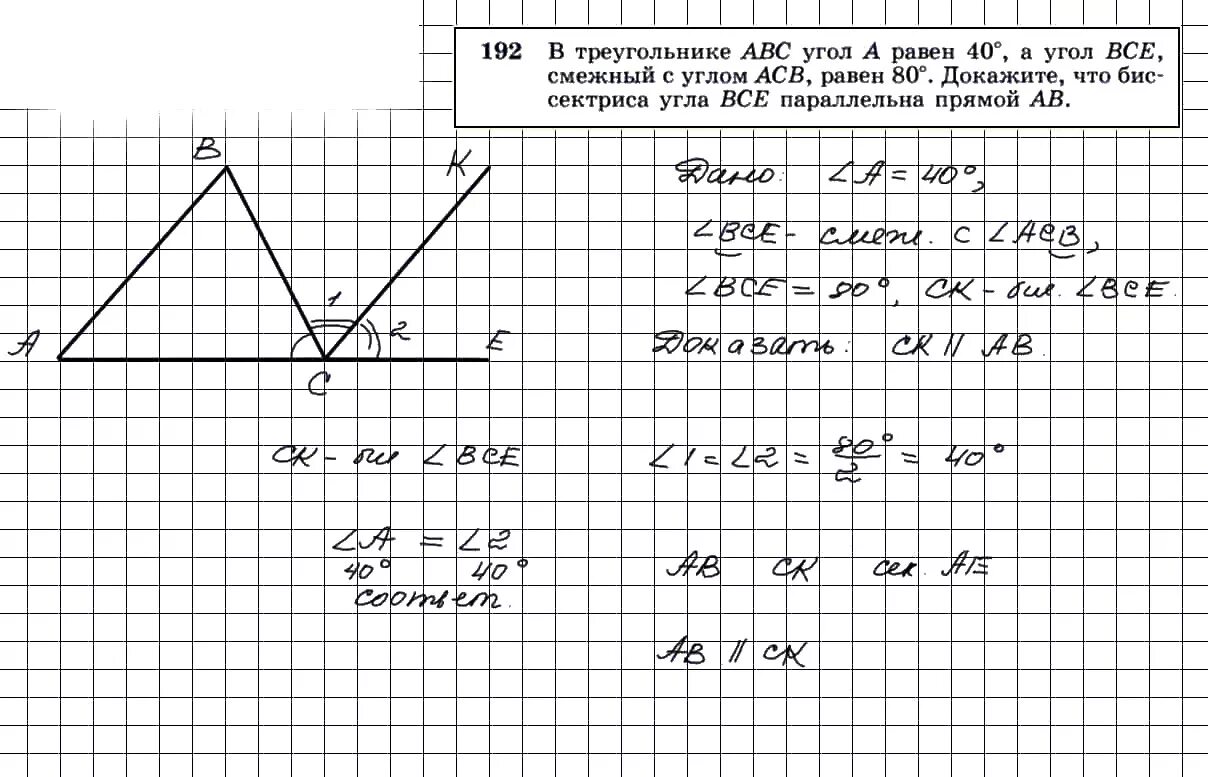 192 В треугольнике ABC угол A равен 40°, а угол BCE,
смежный с углом ACB, равен 80°. Докажите, что бис-
сектриса угла BCE параллельна прямой AB.
B
K
A
1
2
E
C
Дано: ∠A = 40°,
∠BCE - смеж. с ∠ACB,
∠BCE = 80°, CK - бис. ∠BCE.
Доказать: CK || AB.
CK - бис ∠BCE ∠1 = ∠2 = 80°/2 = 40°
∠A = ∠2
40° 40°
соответ.
AB CK сек. AE
AB || CK